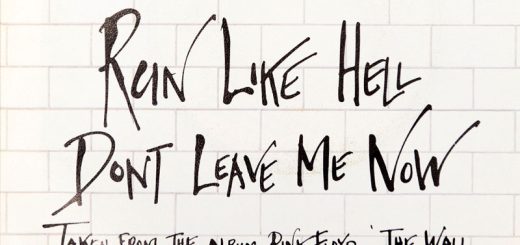 RUN LIKE HELL
DONT LEAVE ME NOW
TAKEN FROM THE ALBUM PINK FLOYD 'THE WALL